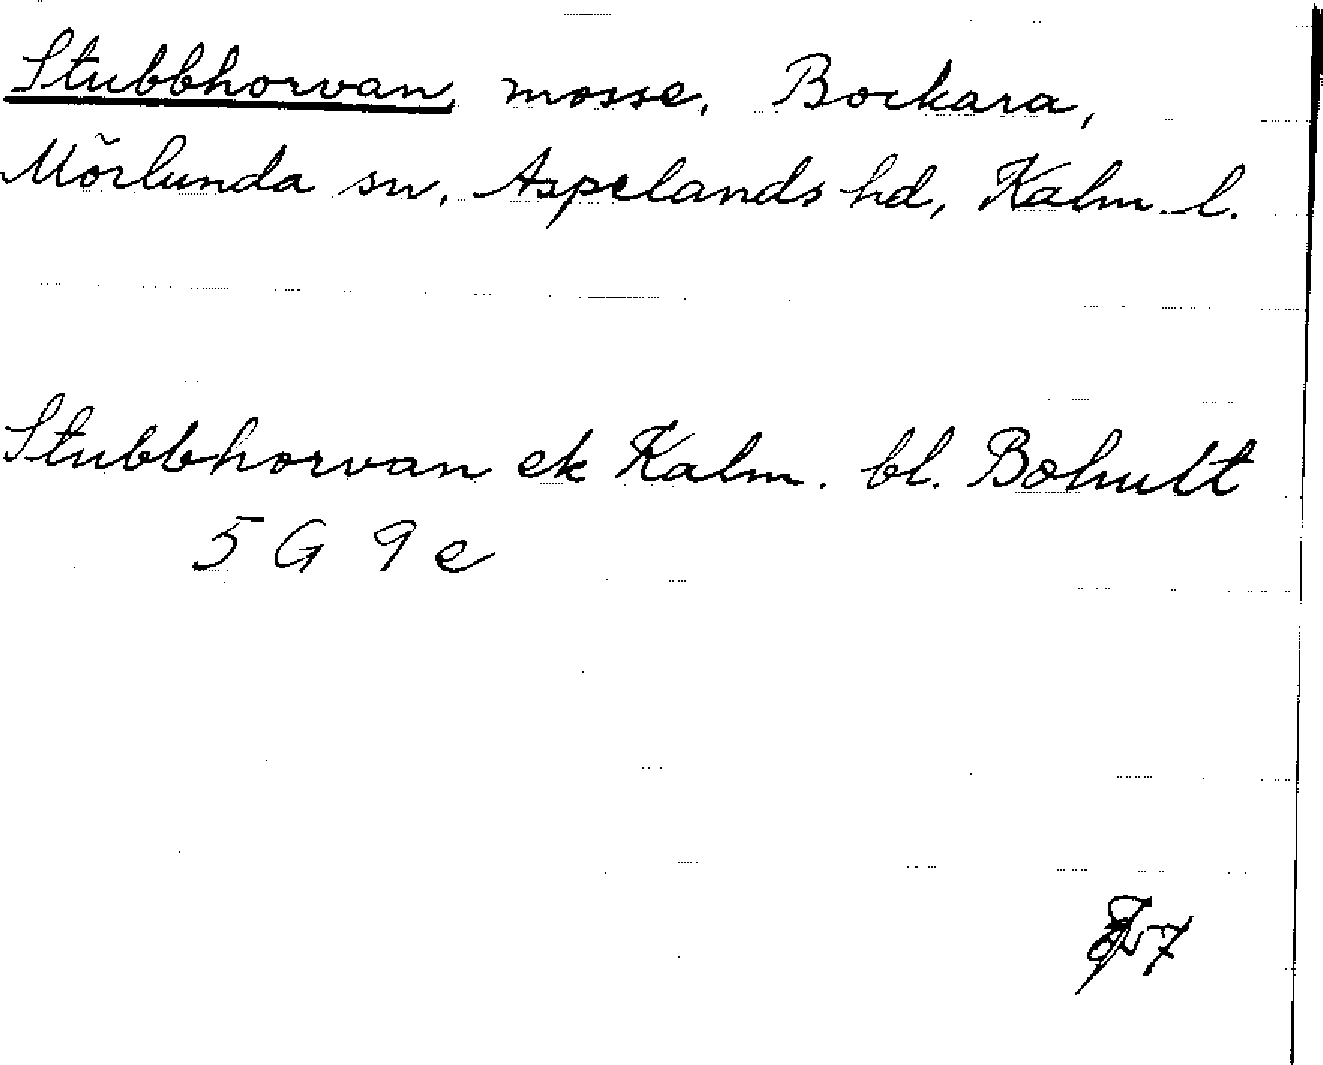 Stubbhorvan, mosse, Bockara,
Mörlunda sn, Aspelands hd, Kalm. l.
Stubbhorvan ek Kalm. bl. Bohult
5 G 9 e